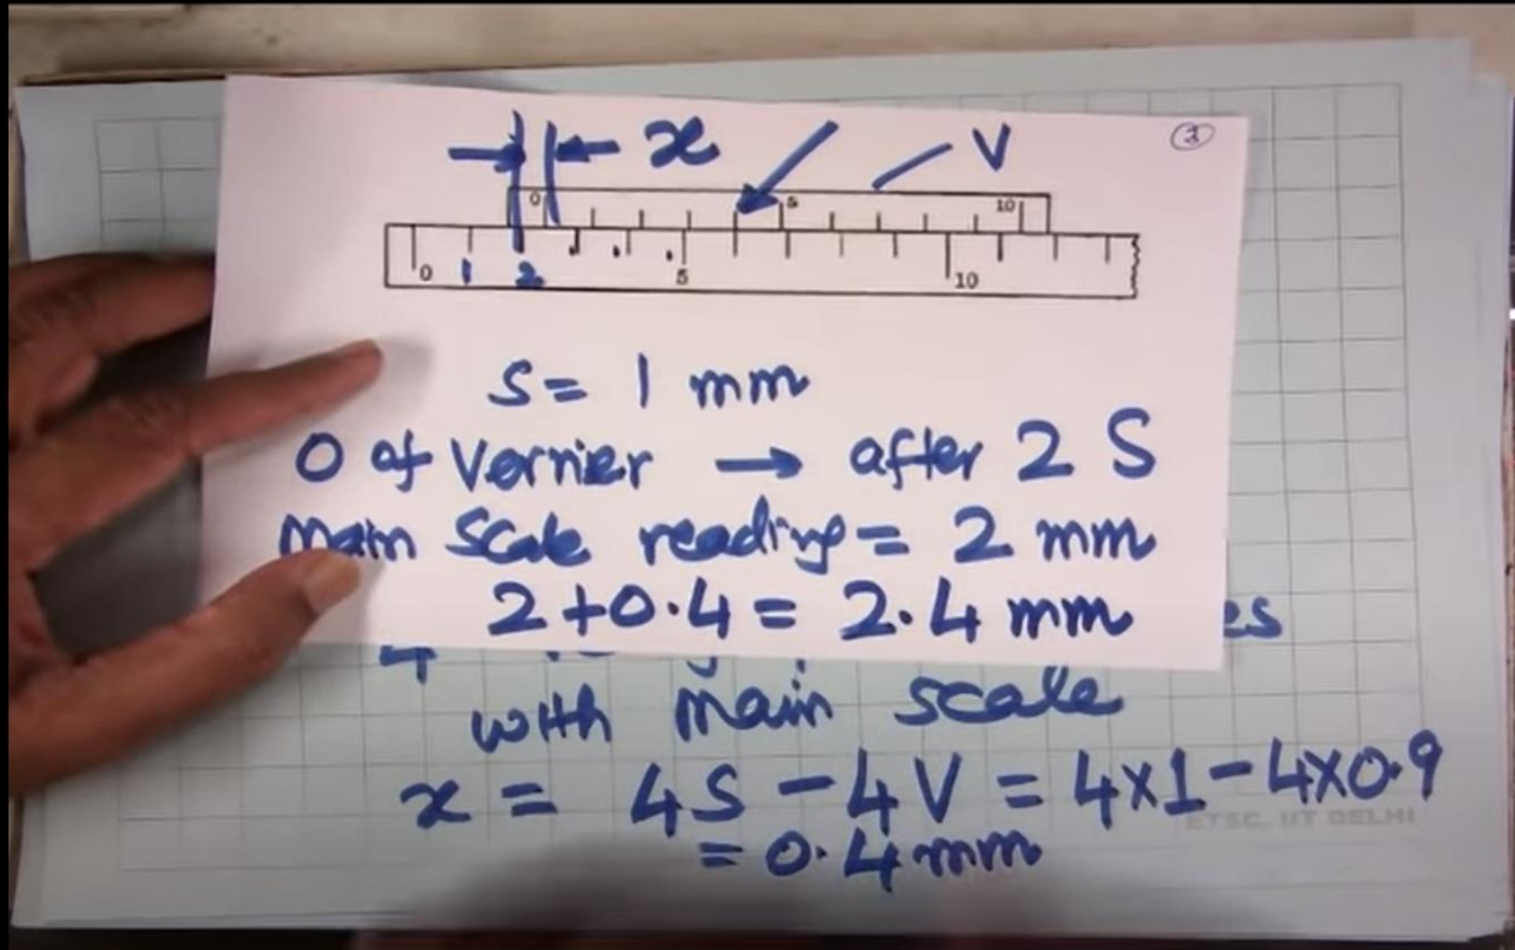 x V 3
0 5 10
0 1 2 5 10
S = 1 mm
0 of Vernier → after 2 S
Main Scale reading = 2 mm
2+0.4 = 2.4 mm
with main scale
x = 4S - 4V = 4x1-4x0.9
ETSC, IIT DELHI
= 0.4 mm